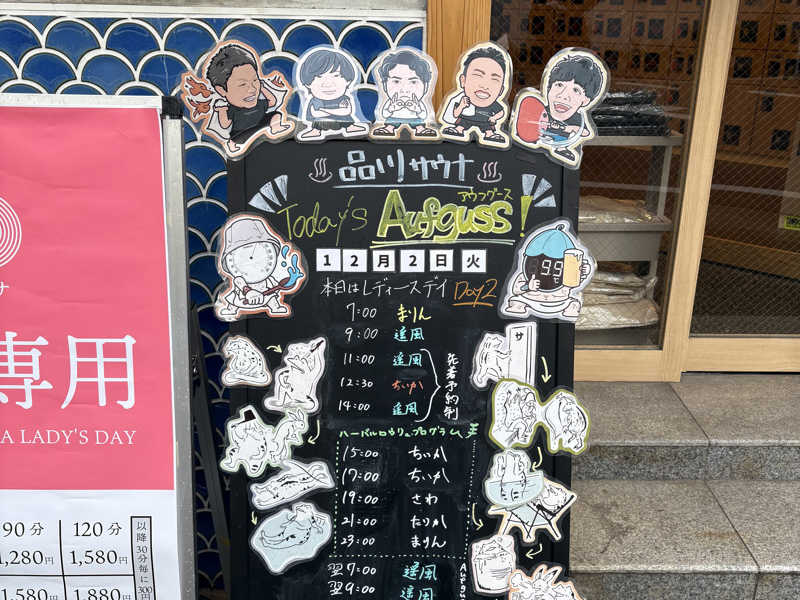 品川サウナ
アウフグース
Today's Aufguss!
12月2日火
本日はレディースデイ Day2
7:00 まりん
9:00 追風
11:00 追風
12:30 ちぃか
14:00 追風
先着予約制
ハーバルロウリュプログラム
15:00 ちぃか
17:00 ちぃか
19:00 さわ
21:00 たりか
23:00 まりん
翌7:00 追風
翌9:00 追風
99
サ
専用
A LADY'S DAY
90分 120分 以降30分毎に300円
1,280円 1,580円
1,580円 1,880円